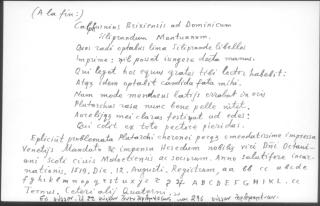 (A la fin:)
Calphurnius Brixiensis ad Dominicum
Siliprandum Mantuanum.
Quos radi optatus lima Siliprande libellos
Imprime: nil possit iungere docta manus.
Qui leget hos equus grates tibi lector habebit:
Atque idem optabit candida fata mihi.
Nam modo mendosus latiis errabat in oris
Plutarchus rasa nunc bene pelle nitet.
Aurelijque mei claras festiquat ad edes:
Qui colit ex toto pectore pieridas.
Expliciunt problemata Plutarchi cheronei perquam emendatissime impressa
Venetijs Mandato & impensa Heredum nobilis viri Dni Octaui-
ani Scoti civis Modoetiensis ac sociorum. Anno salutifere incar-
nationis, 1519, Die, 12, Augusti. Registrum, aa bb cc a b c d e
f g h i k l m n o p q r s t u x y z A B C D E F G H I K L. cc
Ternus, Ceteri alij Quaterni